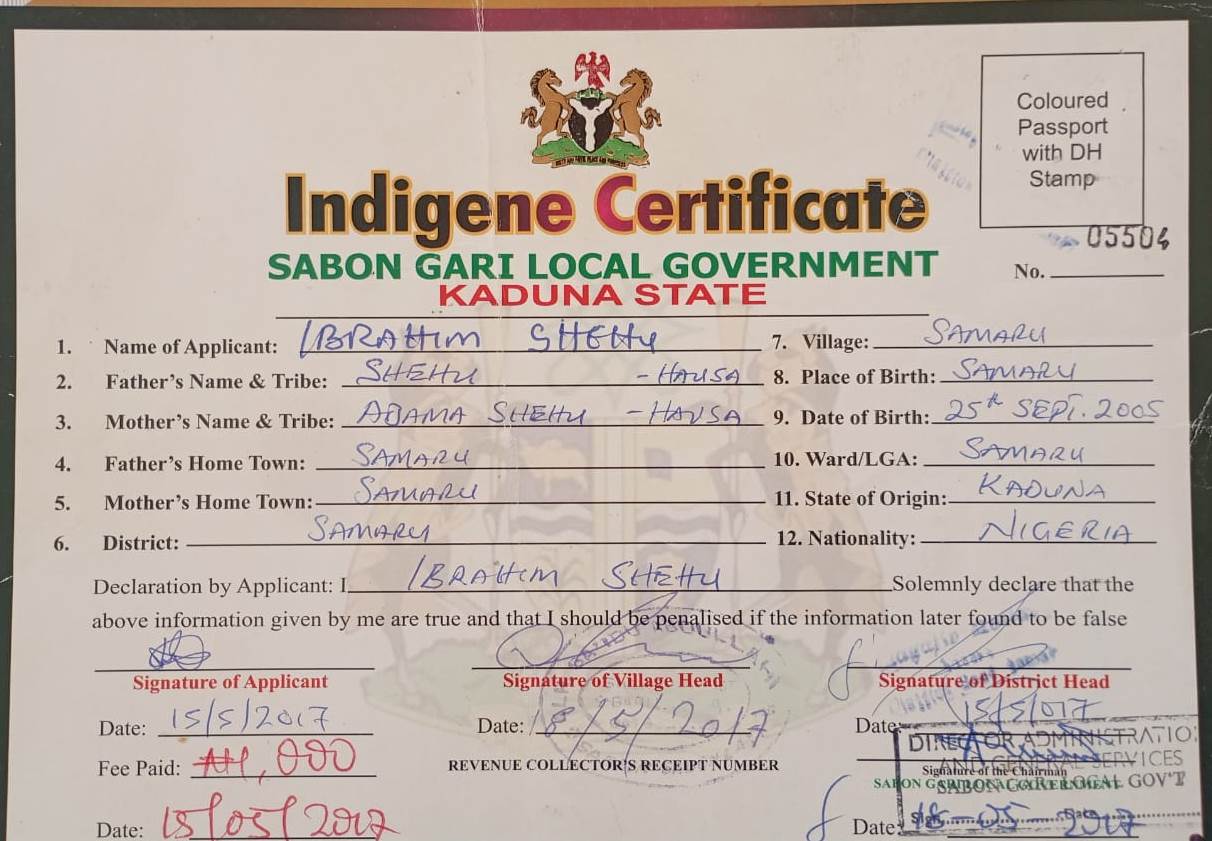 Coloured
Passport
with DH
Stamp
Indigene Certificate
SABON GARI LOCAL GOVERNMENT
KADUNA STATE
05504
No.
1. Name of Applicant: IBRAHIM SHEHU
7. Village: SAMARU
2. Father's Name & Tribe: SHEHU - HAUSA
8. Place of Birth: SAMARU
3. Mother's Name & Tribe: ADAMA SHEHU - HAUSA
9. Date of Birth: 25th SEPT. 2005
4. Father's Home Town: SAMARU
10. Ward/LGA: SAMARU
5. Mother's Home Town: SAMARU
11. State of Origin: KADUNA
6. District: SAMARU
12. Nationality: NIGERIA
Declaration by Applicant: I IBRAHIM SHEHU Solemnly declare that the
above information given by me are true and that I should be penalised if the information later found to be false
Signature of Applicant
Signature of Village Head
Signature of District Head
Date: 15/5/2017
Date: 18/5/2017
Date: 15/5/017
Fee Paid: ₦1,000
REVENUE COLLECTOR'S RECEIPT NUMBER
DIRECTOR ADMINISTRATION
AND GENERAL SERVICES
SABON GARI LOCAL GOV'T
Signature of the Chairman
SABON GARI LOCAL GOVERNMENT
Date: 18/05/2017
Date: 18-05-2017